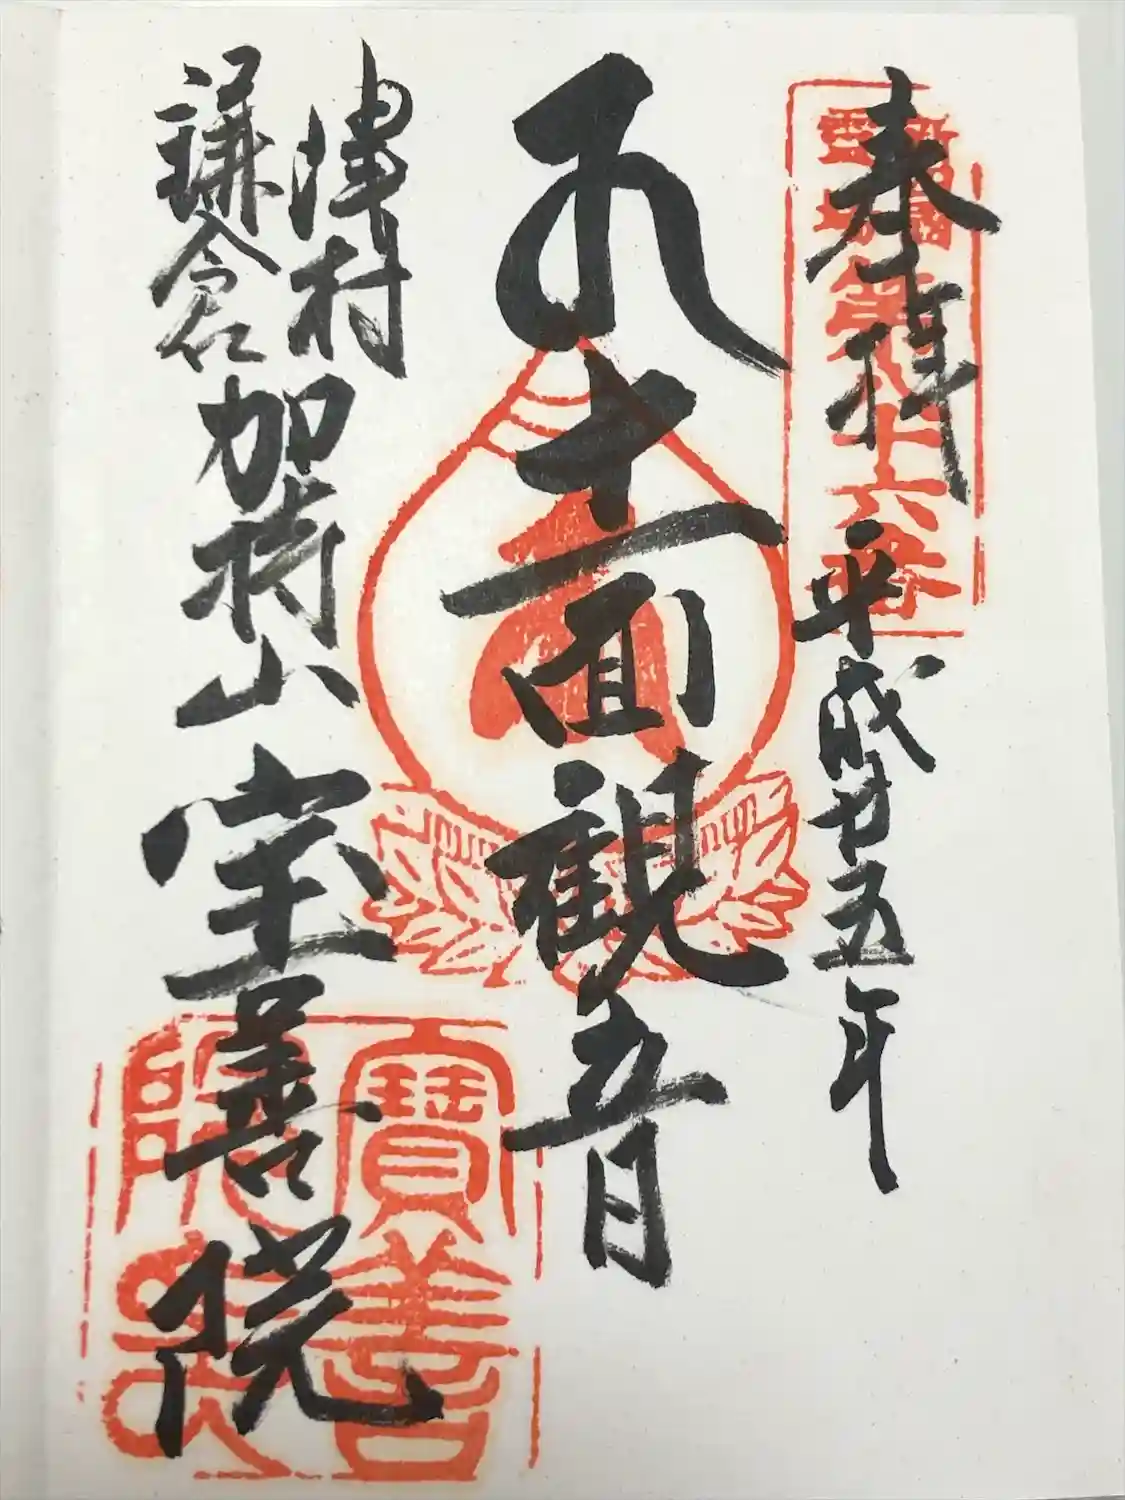 奉拝
平成廿五年
霊場
第八十六番
十一面観音
津村
鎌倉
加持山
宝善院
寶善
院